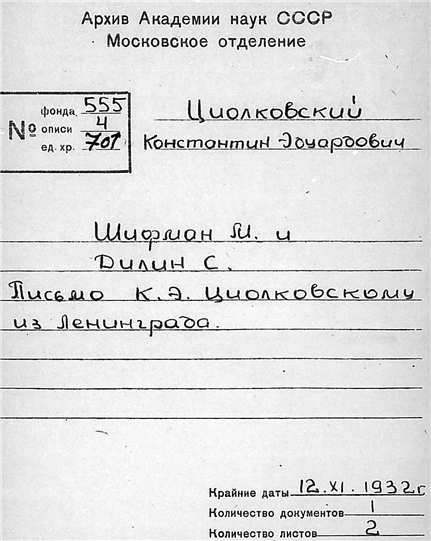 Архив Академии наук СССР
Московское отделение
№
фонда 555
описи 4
ед. хр. 701
Циолковский
Константин Эдуардович
Шифман М. и
Дилин С.
Письмо К.Э. Циолковскому
из Ленинграда.
Крайние даты 12.XI.1932г.
Количество документов 1
Количество листов 2